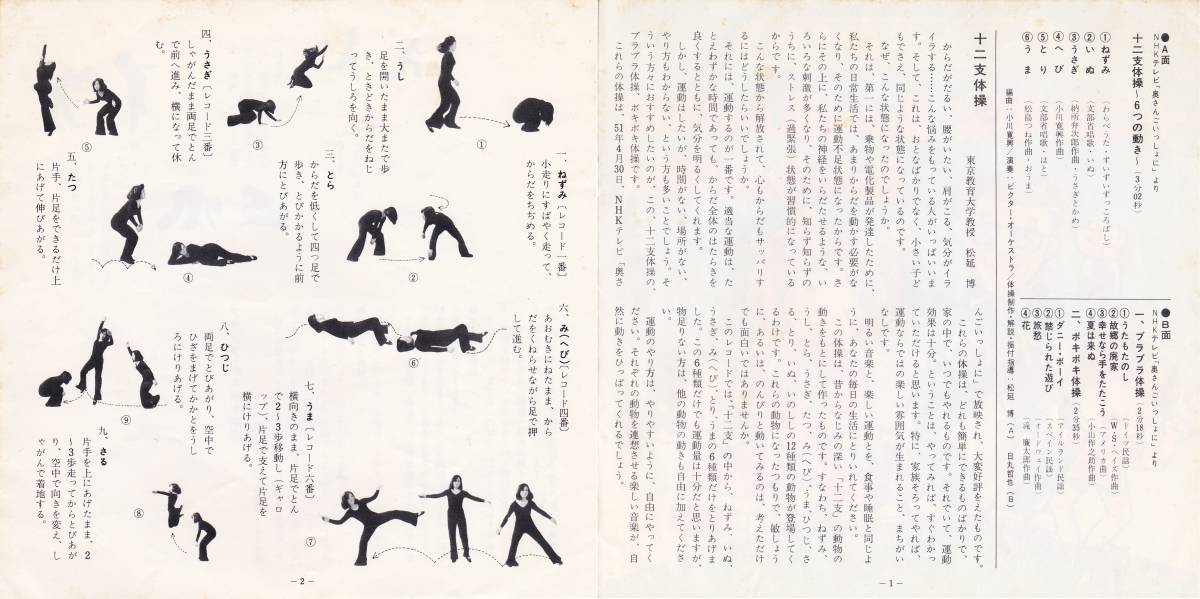 ●A面
NHKテレビ「奥さんごいっしょに」より
十二支体操～6つの動き～（3分02秒）
①ねずみ（わらべうた・ずいずいずっころばし）
②いぬ（文部省唱歌・いぬ）
③うさぎ（納所弁次郎作曲・うさぎとかめ）
④へび（小川寛興作曲）
⑤とり（文部省唱歌・はと）
⑥うま（松島つね作曲・おうま）
編曲：小川寛興／演奏：ビクター・オーケストラ／体操制作・解説・振付指導：松延 博（A） 日丸哲也（B）
●B面
NHKテレビ「奥さんごいっしょに」より
一、ブラブラ体操（2分18秒）
①うたもたのし（ドイツ民謡）
②故郷の廃家（W・S・ヘイズ作曲）
③幸せなら手をたたこう（アメリカ曲）
④夏は来ぬ（小山作之助作曲）
二、ボキボキ体操（2分35秒）
①ダニー・ボーイ（アイルランド民謡）
②禁じられた遊び（スペイン民謡）
③旅愁（オードウェイ作曲）
④花（滝 廉太郎作曲）
十二支体操
東京教育大学教授 松延 博
からだがだるい、腰がいたい、肩がこる、気分がイラ
イラする……こんな悩みをもっている人がいっぱいいま
す。そして、これは、おとなばかりでなく、小さい子ど
もでさえ、同じような状態になっているのです。
なぜ、こんな状態になったのでしょうか。
それは、第一には、乗物や電化製品が発達したために、
私たちの日常生活では、あまりからだを動かす必要がな
くなり、そのために運動不足状態になったからです。さ
らにその上に、私たちの神経をいらだたせるような、い
ろいろな刺激が多くなり、そのために、知らず知らずの
うちに、ストレス（過緊張）状態が習慣的になっている
からです。
こんな状態から解放されて、心もからだもサッパリす
るにはどうしたらいいでしょうか。
それには、運動するのが一番です。適当な運動は、た
とえわずかな時間であっても、からだ全体のはたらきを
良くするとともに、気分を明るくしてくれます。
しかし、運動はしたいが、時間がない、場所がない、
やり方もわからない、という方も多いことでしょう。そ
ういう方々におすすめしたいのが、この、十二支体操の、
ブラブラ体操、ボキボキ体操です。
これらの体操は、51年4月30日、NHKテレビ「奥さ
んごいっしょに」で放映され、大変好評をえたものです。
これらの体操は、どれも簡単にできるものばかりで、
家の中で、いつでもやれるものです。それでいて、運動
効果は十分。ということは、やってみれば、すぐわかっ
ていただけると思います。特に、家族そろってやれば、
運動ならではの楽しい雰囲気が生まれること、まちがい
なしです。
明るい音楽と、楽しい運動とを、食事や睡眠と同じよ
うに、あなたの毎日の生活にとりいれてください。
この体操は、昔からなじみの深い「十二支」の動物の
動きをもとにして作ったものです。すなわち、ねずみ、
うし、とら、うさぎ、たつ、み（へび）、うま、ひつじ、さ
る、とり、いぬ、いのしし の12種類の動物が登場してく
るわけです。これらの動物になったつもりで、敏しょう
に、あるいは、のんびりと動いてみるのは、考えただけ
でも面白いではありませんか。
このレコードでは、「十二支」の中から、ねずみ、いぬ、
うさぎ、み（へび）、とり、うまの6種類だけをとりあげま
した。この6種類だけでも運動量は十分だと思いますが、
物足りない方は、他の動物の動きも自由に加えてくださ
い。
運動のやり方は、やりやすいように、自由にやってく
ださい。それぞれの動物を連想させる楽しい音楽が、自
然に動きをひっぱってくれるでしょう。
－1－
一、ねずみ〔レコード一番〕
小走りにすばやく走って、
からだをちぢめる。
①
二、うし
足を開いたまま大またで歩
き、ときどきからだをねじ
ってうしろを向く。
②
三、とら
からだを低くして四つ足で
歩き、とびかかるように前
方にとびあがる。
③
四、うさぎ〔レコード三番〕
しゃがんだまま両足でとん
で前へ進み、横になって休
む。
④
五、たつ
片手、片足をできるだけ上
にあげて伸びあがる。
⑤
六、み（へび）〔レコード四番〕
あおむきにねたまま、から
だをくねらせながら足で押
して進む。
⑥
七、うま〔レコード六番〕
横向きのまま、片足でとん
で2～3歩移動し（ギャロ
ップ）、片足で支えて片足を
横にけりあげる。
⑦
八、ひつじ
両足でとびあがり、空中で
ひざをまげてかかとをうし
ろにけりあげる。
⑧
九、さる
片手を上にあげたまま、2
～3歩走ってからとびあが
り、空中で向きを変え、し
ゃがんで着地する。
⑨
－2－